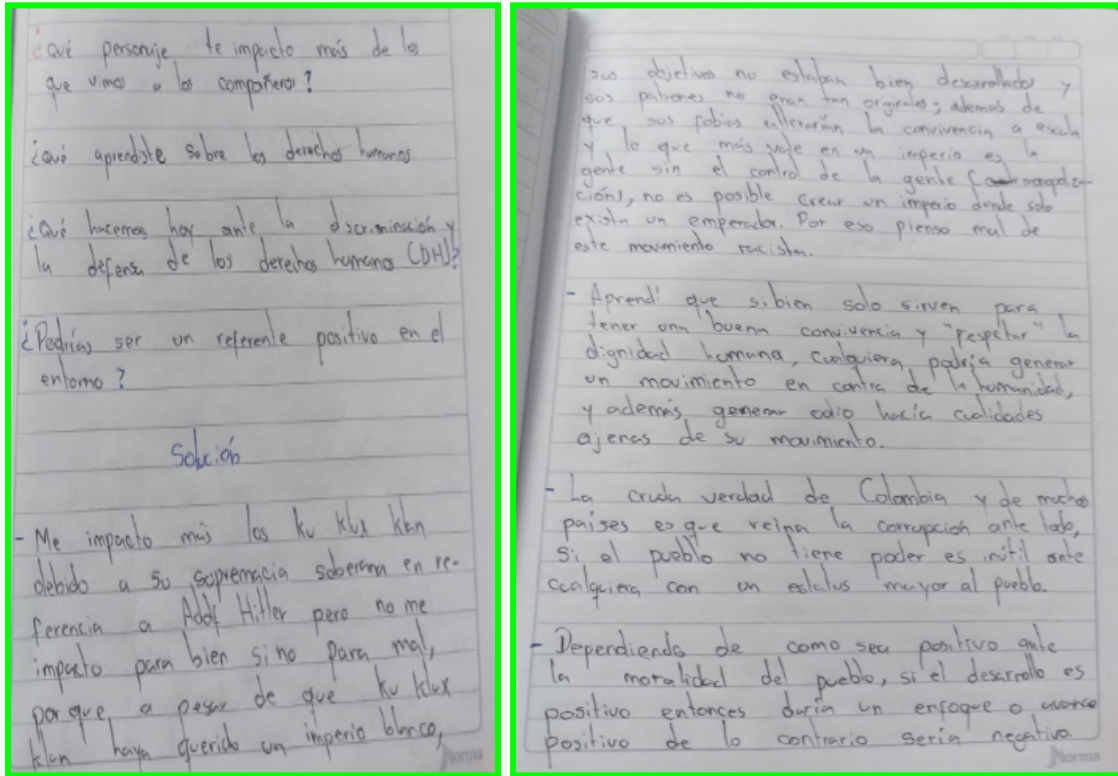 ¿Qué personaje te impacto más de los
que vimos a los compañeros?
¿Qué aprendiste sobre los derechos humanos
¿Qué hacemos hoy ante la discriminación y
la defensa de los derechos humano (DH)?
¿Podrías ser un referente positivo en el
entorno?
Solución
- Me impacto más los ku klux klan
debido a su supremacia soberana en re-
ferencia a Adolf Hitler pero no me
impacto para bien si no para mal,
porque, a pesar de que ku klux
klan haya querido un imperio blanco,
Norma
sus objetivos no estaban bien desarrollados y
sus patrones no eran tan originales; ademas de
que sus fobias la convivencia a
y lo que más vale en un imperio es la
gente sin el control de la gente
ción), no es posible crear un imperio donde solo
exista un emperador. Por eso pienso mal de
este movimiento racista.
- Aprendí que si bien solo sirven para
tener una buena convivencia y "respetar" la
dignidad humana, cualquiera podría generar
un movimiento en contra de la humanidad,
y además, generar odio hacía cualidades
ajenas de su movimiento.
- La cruda verdad de Colombia y de muchos
países es que reina la corrupción ante todo,
si el pueblo no tiene poder es inútil ante
cualquiera con un estatus mayor al pueblo.
- Dependiendo de como sea positivo ante
la moralidad del pueblo, si el desarrollo es
positivo entonces daría un enfoque o avance
positivo de lo contrario sería negativo.
Norma